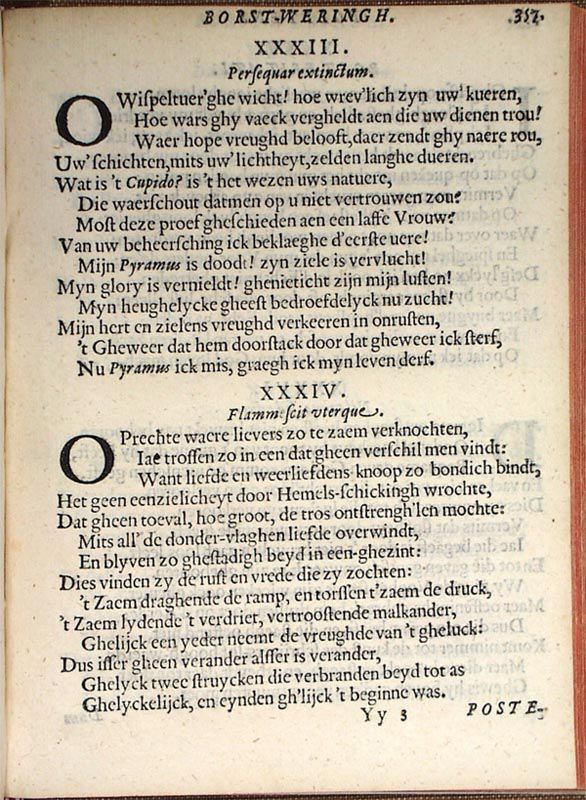 BORST-WERINGH. 357.
XXXIII.
Persequar extinctum.
O Wispeltuer'ghe wicht! hoe wrev'lich zyn uw' kueren,
Hoe wars ghy vaeck vergheldt aen die uw' dienen trou!
Waer hope vreughd belooft, daer zendt ghy naere rou,
Uw' schichten, mits uw' lichtheyt, zelden langhe dueren.
Wat is 't Cupido? is 't het wezen uws natuere,
Die waerschout datmen op u niet vertrouwen zou?
Most deze proef gheschieden aen een laffe Vrouw?
Van uw beheersching ick beklaeghe d'eerste uere!
Mijn Pyramus is doodt! zyn ziele is vervlucht!
Myn glory is vernieldt! ghenieticht zijn mijn lusten!
Myn heughelycke gheest bedroefdelyck nu zucht!
Mijn hert en zielens vreughd verkeeren in onrusten,
't Gheweer dat hem doorstack door dat gheweer ick sterf,
Nu Pyramus ick mis, graegh ick myn leven derf.
XXXIV.
Flammescit vterque.
O Prechte waere lievers zo te zaem verknochten,
Iae trossen zo in een dat gheen verschil men vindt:
Want liefde en weerliefdens knoop zo bondich bindt,
Het geen eenzielicheyt door Hemels-schickingh wrochte,
Dat gheen toeval, hoe groot, de tros ontstrengh'len mochte:
Mits all' de donder-vlaghen liefde overwindt,
En blyven zo ghestadigh beyd in een-ghezint:
Dies vinden zy de rust en vrede die zy zochten:
't Zaem draghende de ramp, en torssen t'zaem de druck,
't Zaem lydende 't verdriet, vertroostende malkander,
Ghelijck een yeder neemt de vreughde van 't gheluck!
Dus isser gheen verander alsser is verander,
Ghelyck twee struycken die verbranden beyd tot as
Ghelyckelijck, en eynden gh'lijck 't beginne was.
Yy 3 POSTE-